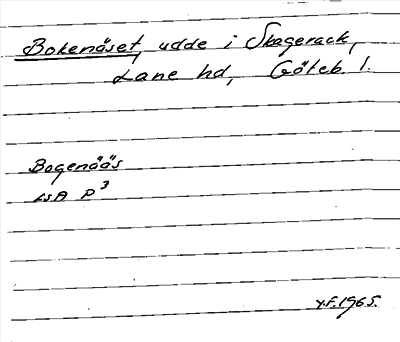 Bokenäset, udde i Skagerack,
Lane hd, Göteb. l.
Bogenääs
LSA P3
Y.F. 1965.